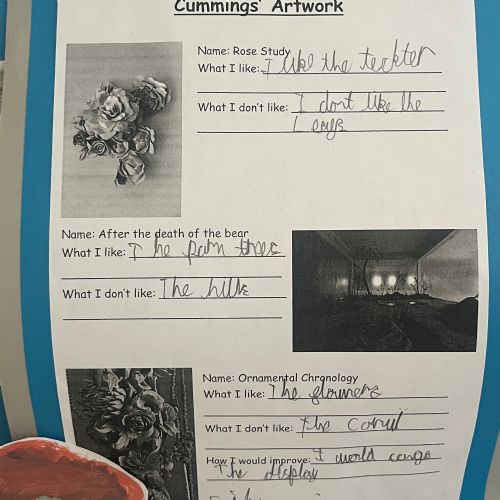 Cummings' Artwork
Name: Rose Study
What I like: I like the teckter
What I don't like: I dont like the
Leafs
Name: After the death of the bear
What I like: The palm trees
What I don't like: The hills
Name: Ornamental Chronology
What I like: The flowers
What I don't like: The
How I would improve: I would
The display